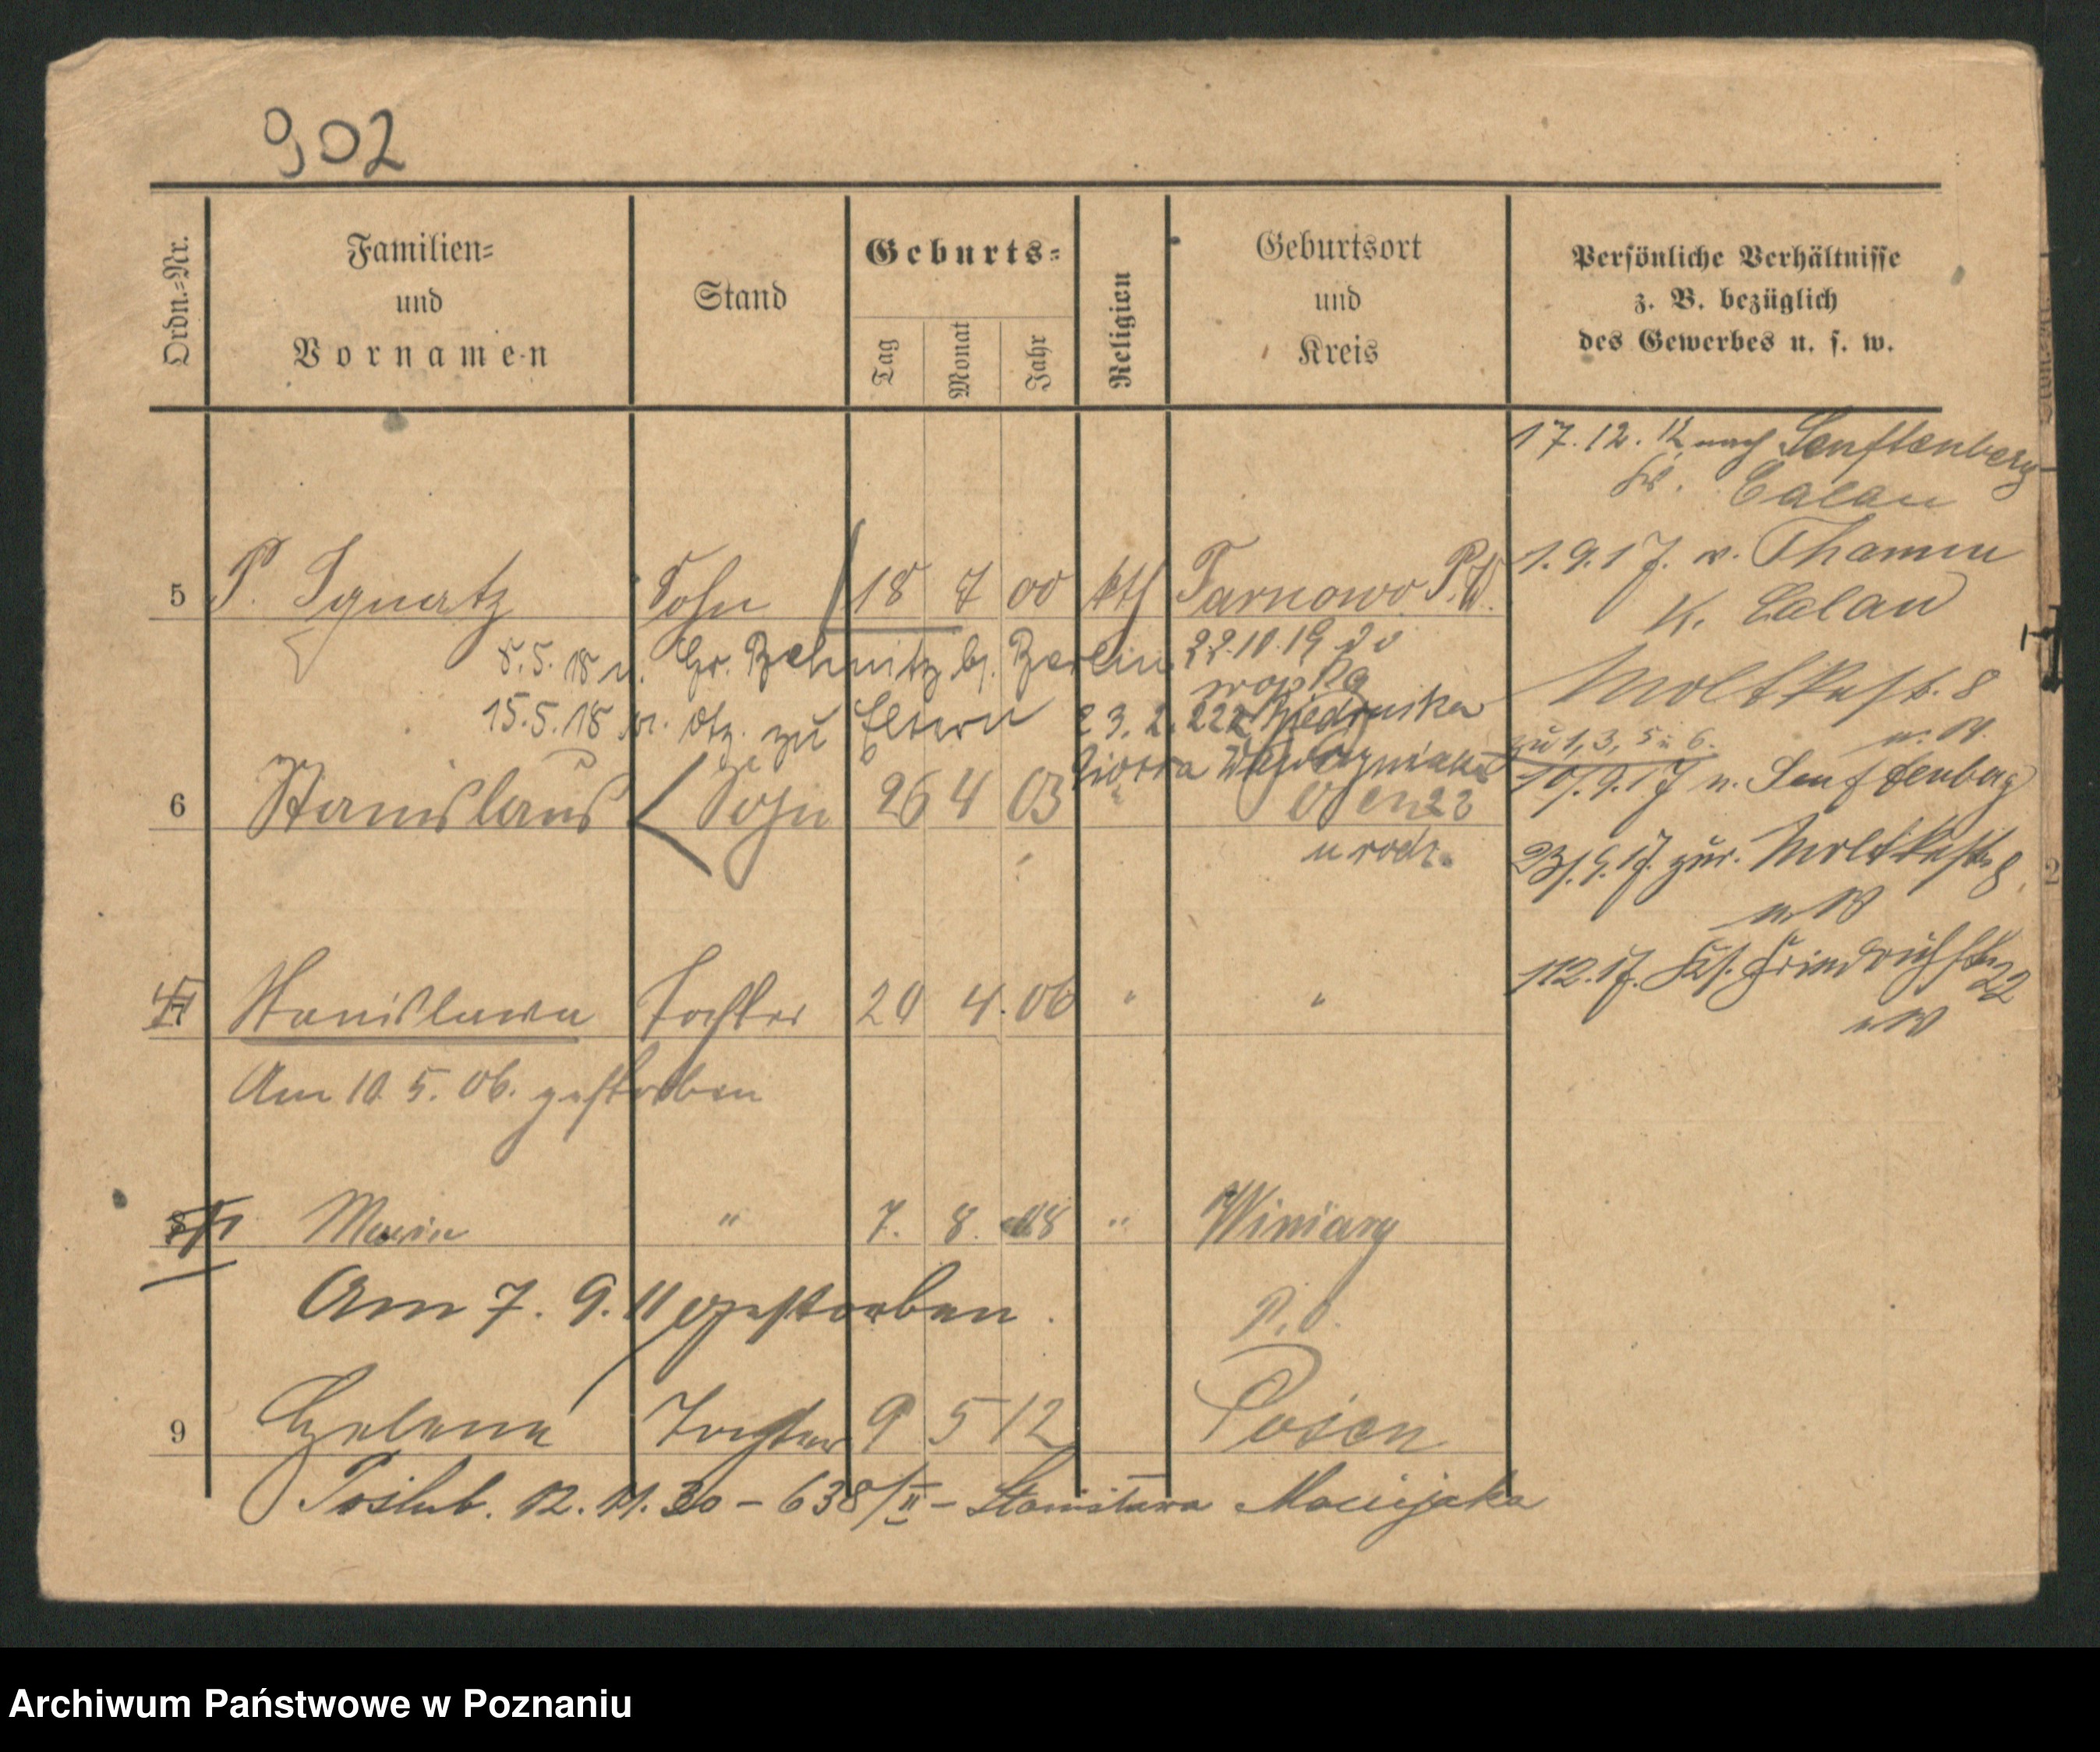 902
Ordn.-Nr.
Familien-
und
Vornamen
Stand
Geburts-
Tag
Monat
Jahr
Religion
Geburtsort
und
Kreis
Persönliche Verhältnisse
z. B. bezüglich
des Gewerbes u. s. w.
17. 12. 12 nach Senftenberg
Kr. Calau
5 P. Ignatz Sohn 18 7 00 kth Tarnowo P.W.
1. 9. 17. v. Thamm
K. Calau
8. 5. 18 n. Gr. Behnitz b. Berlin 22. 10. 19 do
wojska
Moltkestr. 8
15. 5. 18 v. dtz. zu Eltern 23. 2. 22 z Biedruska
zu 1, 3, 5 u 6.
6 Stanislaus Sohn 26 4 03 "
10/. 9. 17 n. Senftenberg
u rodz.
23/. 9. 17. zur. Moltkestr 8.
7 Stanislawa Tochter 20 4. 06 " "
1 12. 17. Kl. Friedrichstr 22
Am 10. 5. 06. gestorben
8 Maria " 7. 8. 08 " Winiary
Am 7. 9. 11 gestorben.
P. O.
9 Helena Tochter 9 5 12 Posen
Poślub. 12. 11. 30 – 638/II – Stanisława Maciejaka
Archiwum Państwowe w Poznaniu